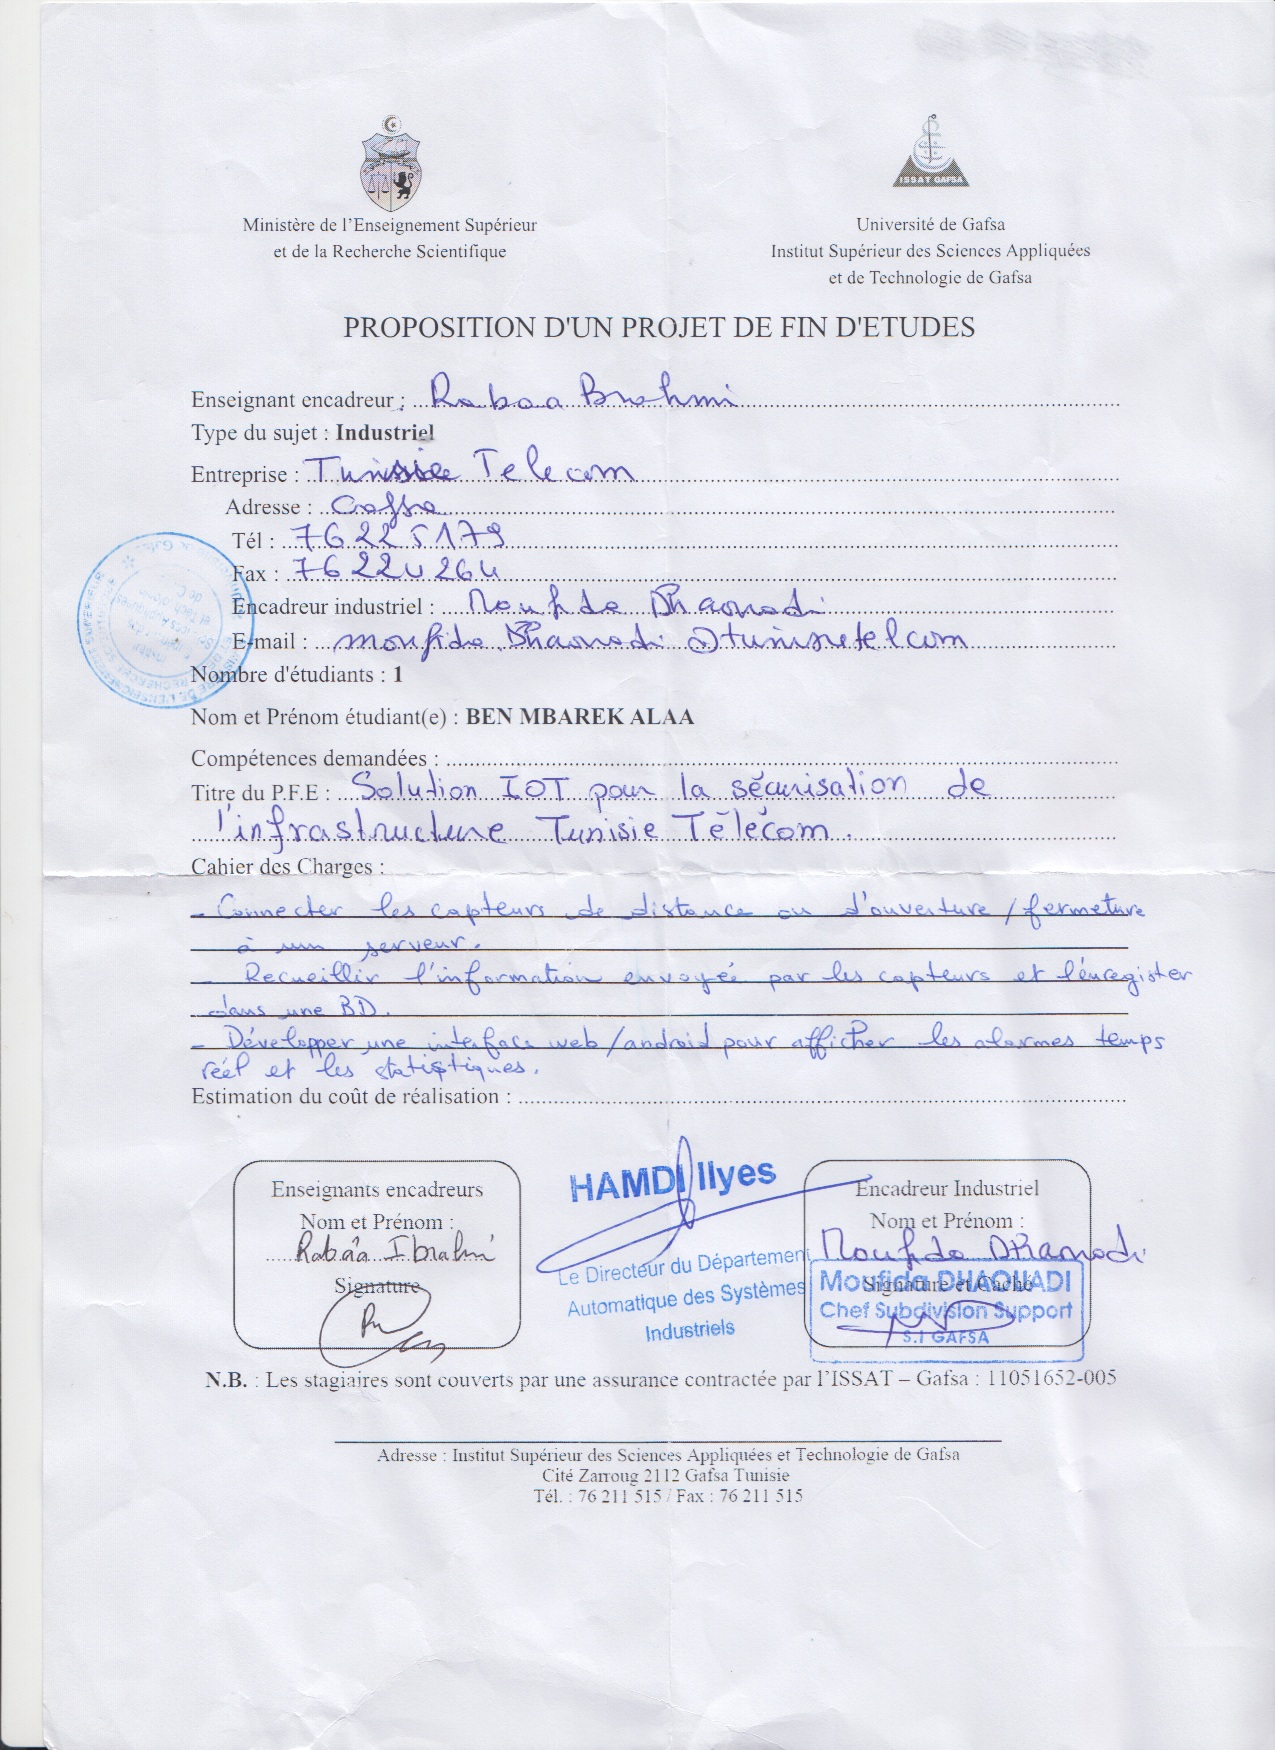 ISSAT GAFSA
Ministère de l'Enseignement Supérieur
et de la Recherche Scientifique
Université de Gafsa
Institut Supérieur des Sciences Appliquées
et de Technologie de Gafsa
PROPOSITION D'UN PROJET DE FIN D'ETUDES
Enseignant encadreur : Rabaa Brahmi
Type du sujet : Industriel
Entreprise : Tunisie Telecom
Adresse : Gafsa
Tél : 76225179
Fax : 76224264
Encadreur industriel : Moufida Dhaouadi
E-mail : moufida.Dhaouadi@tunisietelcom
Nombre d'étudiants : 1
Nom et Prénom étudiant(e) : BEN MBAREK ALAA
Compétences demandées :
Titre du P.F.E : Solution IOT pour la sécurisation de
l'infrastructure Tunisie Télécom.
Cahier des Charges :
- Connecter les capteurs de distance ou d'ouverture/fermeture
à un serveur.
- Recueillir l'information envoyée par les capteurs et l'énregister
dans une BD.
- Développer une interface web/android pour afficher les alarmes temps
réel et les statistiques.
Estimation du coût de réalisation :
Enseignants encadreurs
Nom et Prénom :
Rabâa Ibrahmi
Signature
HAMDI Ilyes
Le Directeur du Département
Automatique des Systèmes
Industriels
Encadreur Industriel
Nom et Prénom :
Moufida Dhaouadi
Signature et Cachet
Moufida DHAOUADI
Chef Subdivision Support
S.I GAFSA
N.B. : Les stagiaires sont couverts par une assurance contractée par l'ISSAT – Gafsa : 11051652-005
Adresse : Institut Supérieur des Sciences Appliquées et Technologie de Gafsa
Cité Zarroug 2112 Gafsa Tunisie
Tél. : 76 211 515 / Fax : 76 211 515